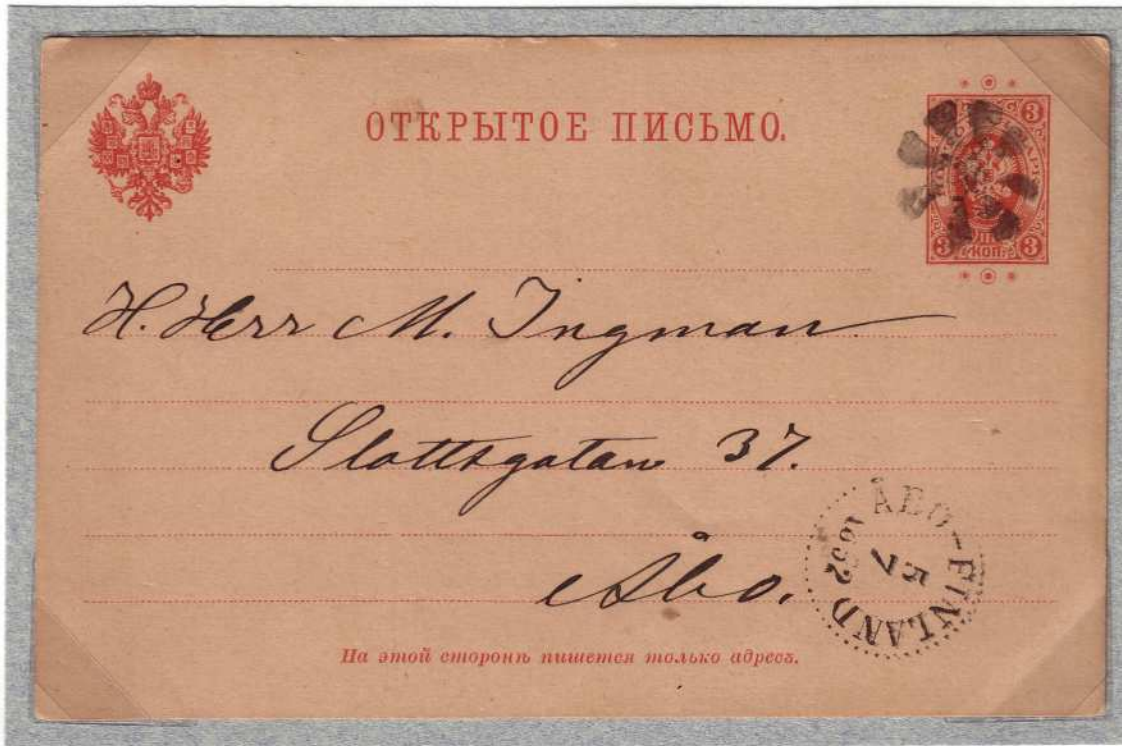 ОТКРЫТОЕ ПИСЬМО.
3
3 3
КОП.
H. Herr M. Ingman
Slottsgatan 37.
Åbo.
ÅBO-FINLAND
5 7
На этой сторонѣ пишется только адресъ.